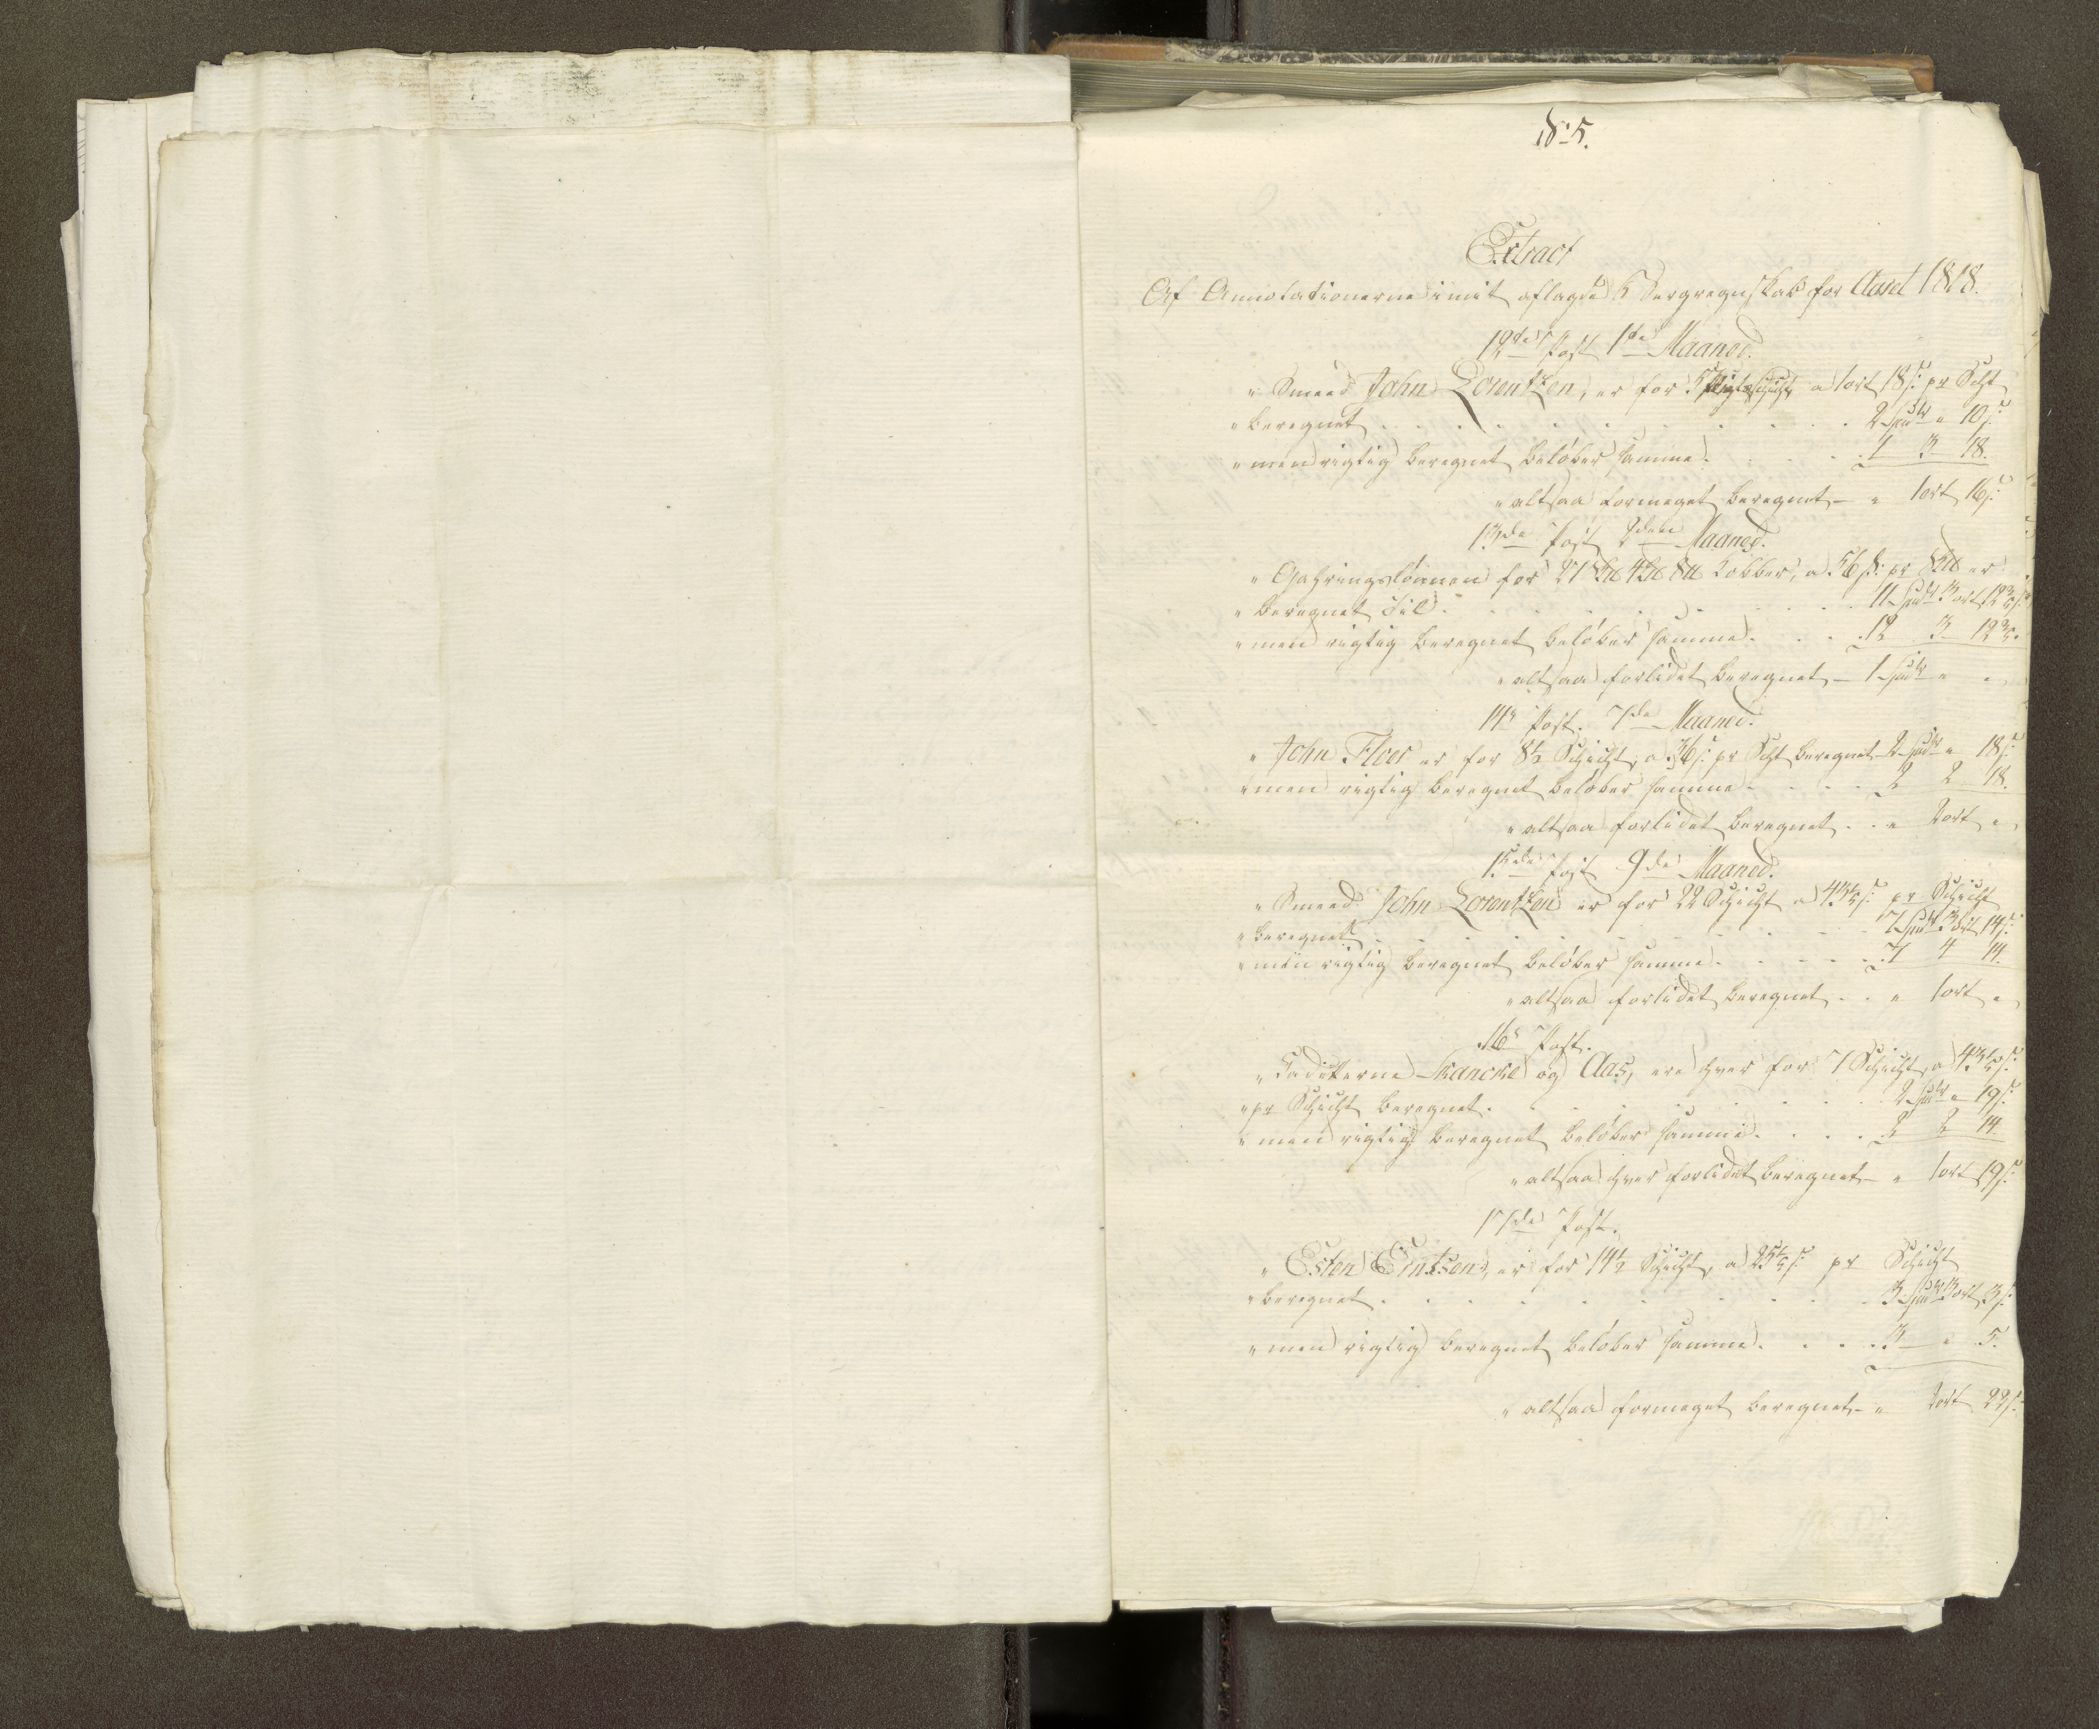 № 5.
Extract
Af Annotationerne i mit aflagde Bergregnskab for Aaret 1818.
12te Post 1ste Maaned.
" Smeed John Lorentzen, er for 5 Schicht a 1 ort 18 s: pr Scht
" beregnet . . . . . . . . . . . 2 Spdlr " 10 s:
" men rigtig beregnet beløber samme. . . . 1 3 18.
" altsaa formeget beregnet - " 1 ort 16 s:
13de Post 2den Maaned.
" Gahringslønnen for 27 S℔ 4 L℔ 8 ℔ Kobber, a 56 s: pr S℔ er
" beregnet til . . . . . . . . . . 11 Spdlr 3 ort 12 3/5 s:
" men rigtig beregnet beløber samme. . . . 12 3 12 3/5.
" altsaa forlidet beregnet - 1 Spdlr " "
14de Post. 7de Maaned.
" John Floer er for 8½ Schicht, a 36 s: pr Scht beregnet - 2 Spdlr " 18 s:
" men rigtig beregnet beløber samme . . . . 2 2 18.
" altsaa forlidet beregnet . . " 2 ort "
15de Post 9de Maaned.
" Smeed John Lorentzen er for 22 Schicht a 43 1/5 s: pr Schicht
" beregnet . . . . . . . . . . . 7 Spdlr 3 ort 14 s:
" men rigtig beregnet beløber samme. . . . . 7 4 14.
" altsaa forlidet beregnet . . " 1 ort "
16de Post.
" Cadetterne Skancke og Aas, ere hver for 7 Schicht, a 43 1/5 s:
" pr Schicht beregnet . . . . . . . . . 2 Spdlr " 19 s:
" men rigtig beregnet beløber samme. . . . . 2 2 14.
" altsaa hver forlidet beregnet - " 1 ort 19 s:
17de Post.
" Esten Erntsen, er for 14½ Schicht, a 25 1/5 s: pr Schicht
" beregnet . . . . . . . . . . . 3 Spdlr 3 ort 3 s:
" men rigtig beregnet beløber samme. . . . . 3 " 5.
" altsaa formeget beregnet - " 2 ort 22 s: